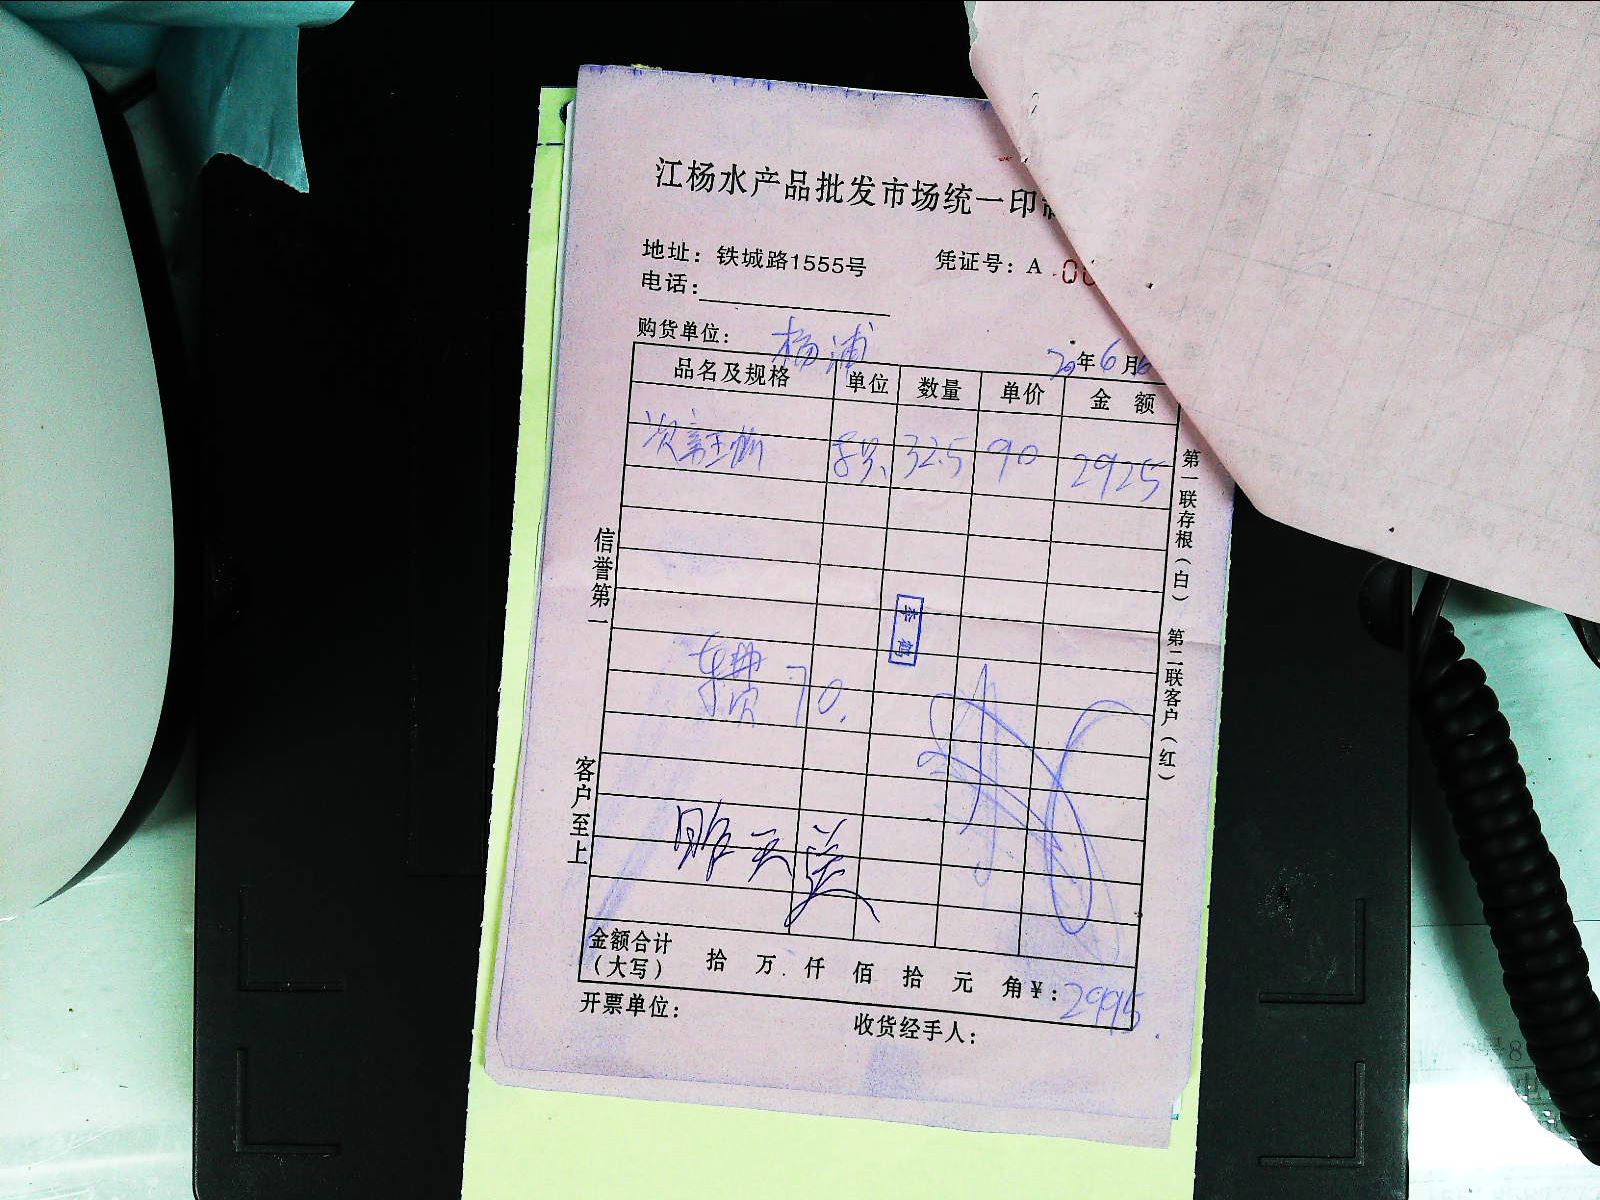 江杨水产品批发市场统一印
地址：铁城路1555号 凭证号：A 00
电话：
购货单位： 杨浦
20年6月6
品名及规格 单位 数量 单价 金额
32.5 90 2925
车费 70.
昨天送
金额合计（大写） 拾 万 仟 佰 拾 元 角 ¥：2995
开票单位： 收货经手人：
信誉第一 客户至上
第一联存根（白） 第二联客户（红）